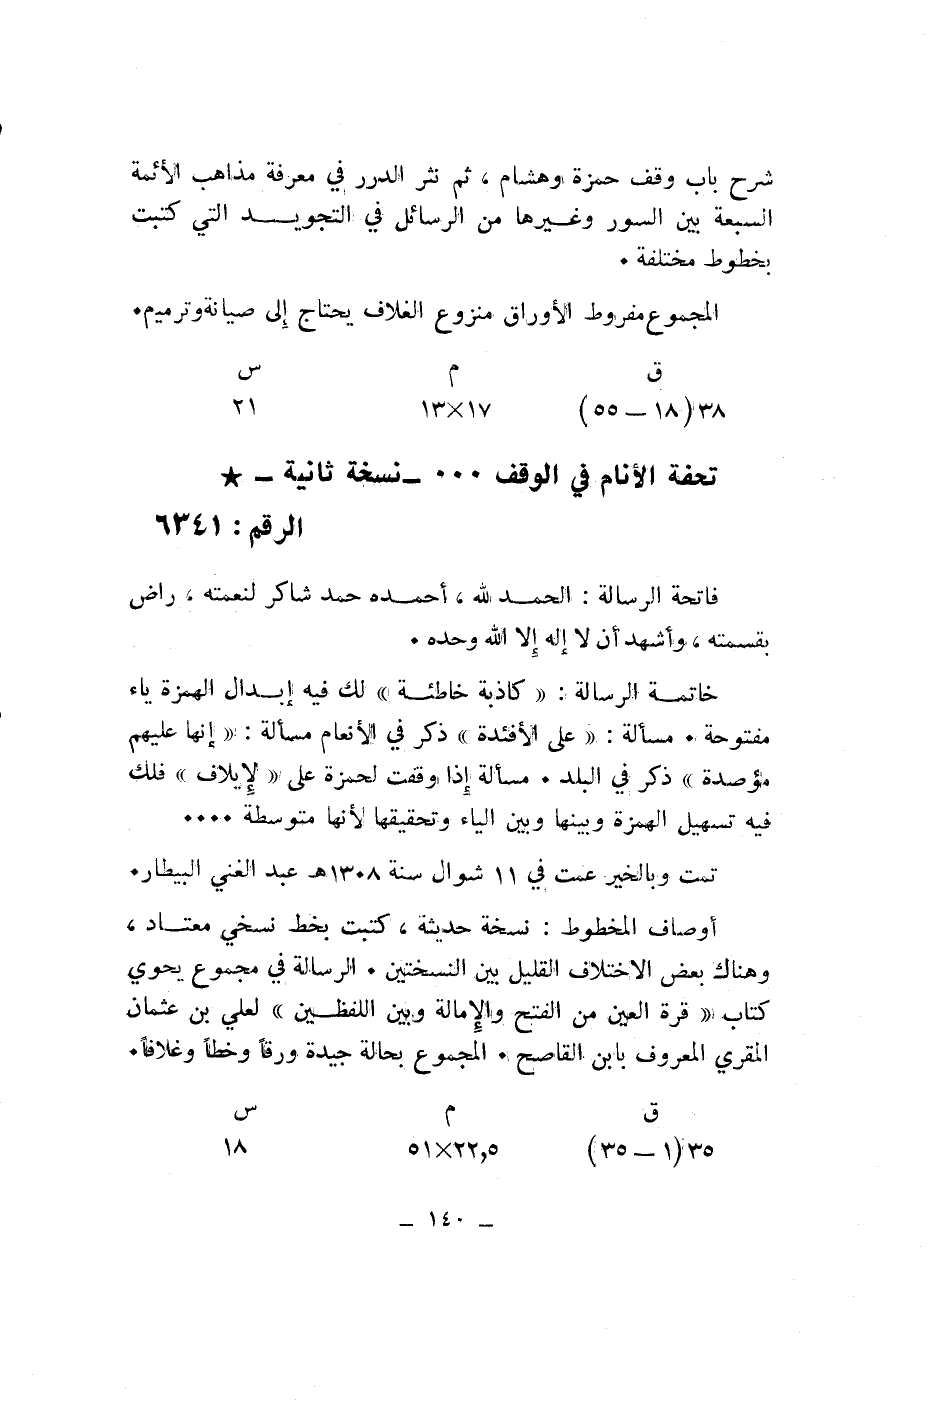 شرح باب وقف حمزة وهشام ، ثم نثر الدرر في معرفة مذاهب الأئمة
السبعة بين السور وغيرها من الرسائل في التجويد التي كتبت
بخطوط مختلفة .
المجموع مفروط الأوراق منزوع الغلاف يحتاج إلى صيانة وترميم.
ق م س
٣٨(١٨ – ٥٥) ١٧×١٣ ٢١
تحفة الأنام في الوقف ... – نسخة ثانية – ★
الرقم : ٦٣٤١
فاتحة الرسالة : الحمد لله ، أحمده حمد شاكر لنعمته ، راض
بقسمته ، وأشهد أن لا إله إلا الله وحده .
خاتمة الرسالة : « كاذبة خاطئة » لك فيه إبدال الهمزة ياء
مفتوحة . مسألة : « على الأفئدة » ذكر في الأنعام مسألة : « إنها عليهم
مؤصدة » ذكر في البلد . مسألة إذا وقفت لحمزة على « لإيلاف » فلك
فيه تسهيل الهمزة وبينها وبين الياء وتحقيقها لأنها متوسطة ....
تمت وبالخير عمت في ١١ شوال سنة ١٣٠٨هـ عبد الغني البيطار.
أوصاف المخطوط : نسخة حديثة ، كتبت بخط نسخي معتاد ،
وهناك بعض الاختلاف القليل بين النسختين . الرسالة في مجموع يحوي
كتاب « قرة العين من الفتح والإمالة وبين اللفظين » لعلي بن عثمان
المقري المعروف بابن القاصح . المجموع بحالة جيدة ورقاً وخطاً وغلافاً.
ق م س
٣٥(١ – ٣٥) ٢٢,٥×٥١ ١٨
– ١٤٠ –